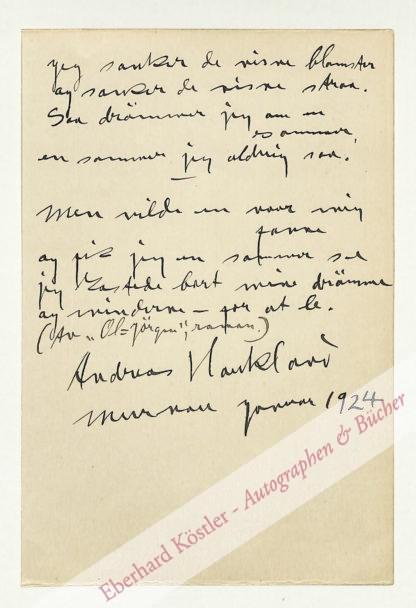 jeg sanker de visne blomster
og sanker de visne straa.
Saa drömmer jeg om en
sommer,
en sommer jeg aldrig saa.
Men vilde en naar mig
og fik jeg en sommer se
jeg kastede bort mine drömme
og minderne – for at le.
(Av „Ol-Jörgen", roman.)
Andreas Haukland
Murnau januar 1924
Eberhard Köstler - Autographen & Bücher